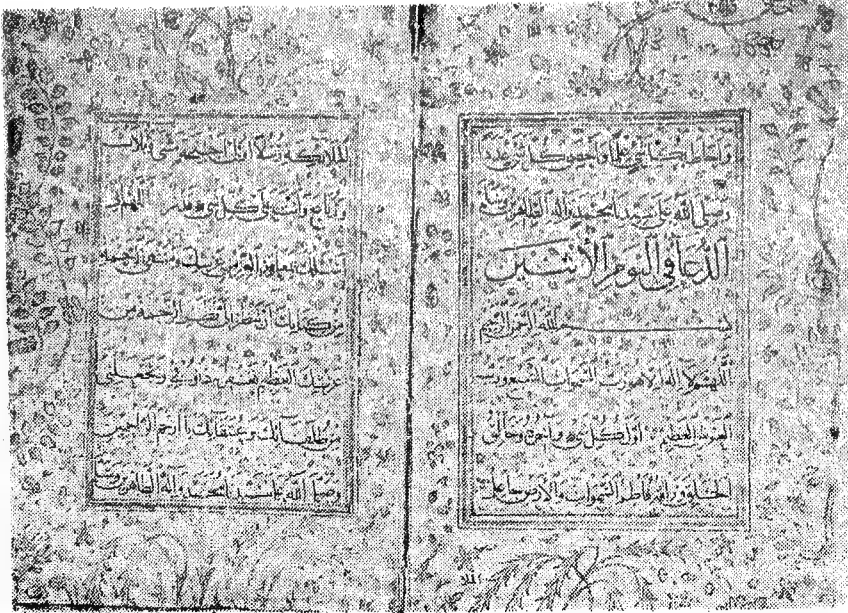 وأحاط بكل شيء علما وأحصى كل شيء عددا
وصلى الله على سيدنا محمد وآله الطاهرين
الدعا في اليوم الاثنين
بسم الله الرحمن الرحيم
لا إله إلا هو رب السموات السبع ورب
العرش العظيم أول كل شيء وآخره وخالق
الخلق ورازقه فاطر السموات والأرض جاعل
الملائكة رسلا أولي أجنحة مثنى وثلاث
ورباع وأنت على كل شيء قدير اللهم
أسئلك بمعاقد العز من عرشك ومنتهى الرحمة
من كتابك أن تنظر إلي الرحمة من
عرشك العظيم وتجعلني
من طلقائك وعتقائك يا أرحم الراحمين
وصلى الله على سيدنا محمد وآله الطاهرين